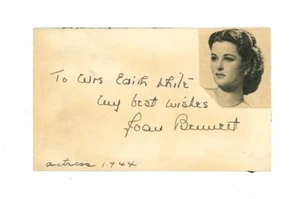 To Mrs Edith White
My best wishes
Joan Bennett
actress 1944